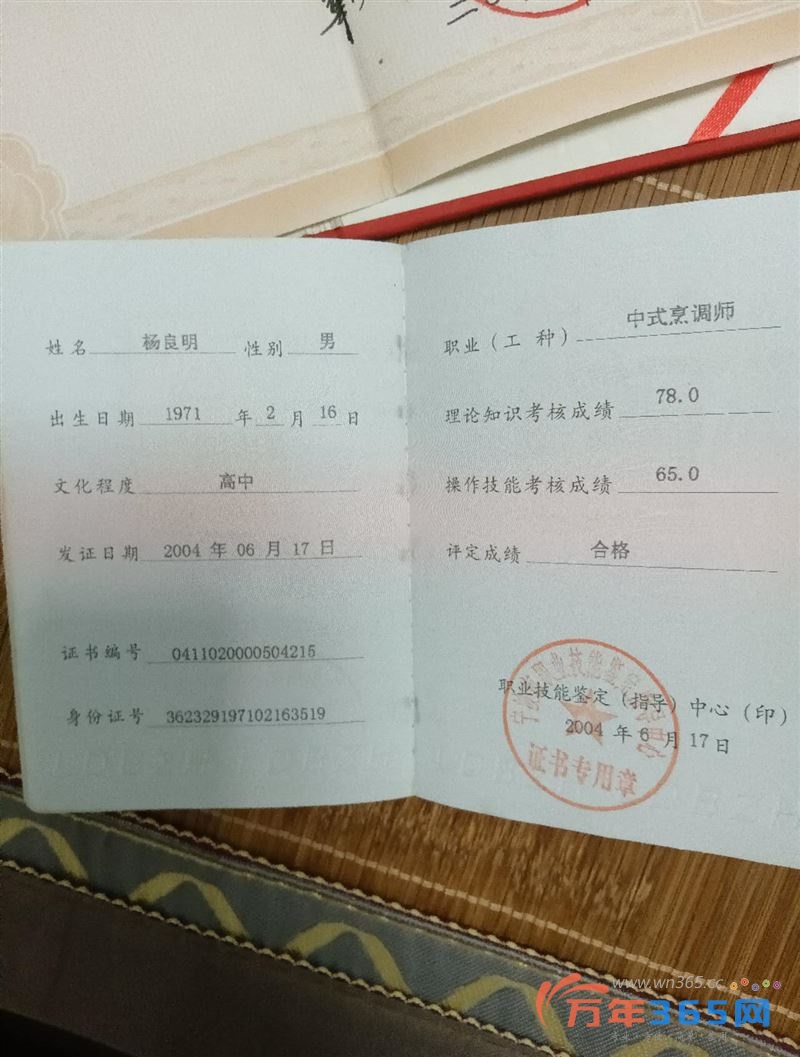 姓名 杨良明 性别 男
出生日期 1971 年 2 月 16 日
文化程度 高中
发证日期 2004 年 06 月 17 日
证书编号 0411020000504215
身份证号 362329197102163519
职业（工 种） 中式烹调师
理论知识考核成绩 78.0
操作技能考核成绩 65.0
评定成绩 合格
职业技能鉴定（指导）中心（印）
2004 年 6 月 17 日
职业技能鉴定
证书专用章
www.wn365.cc
万年365网